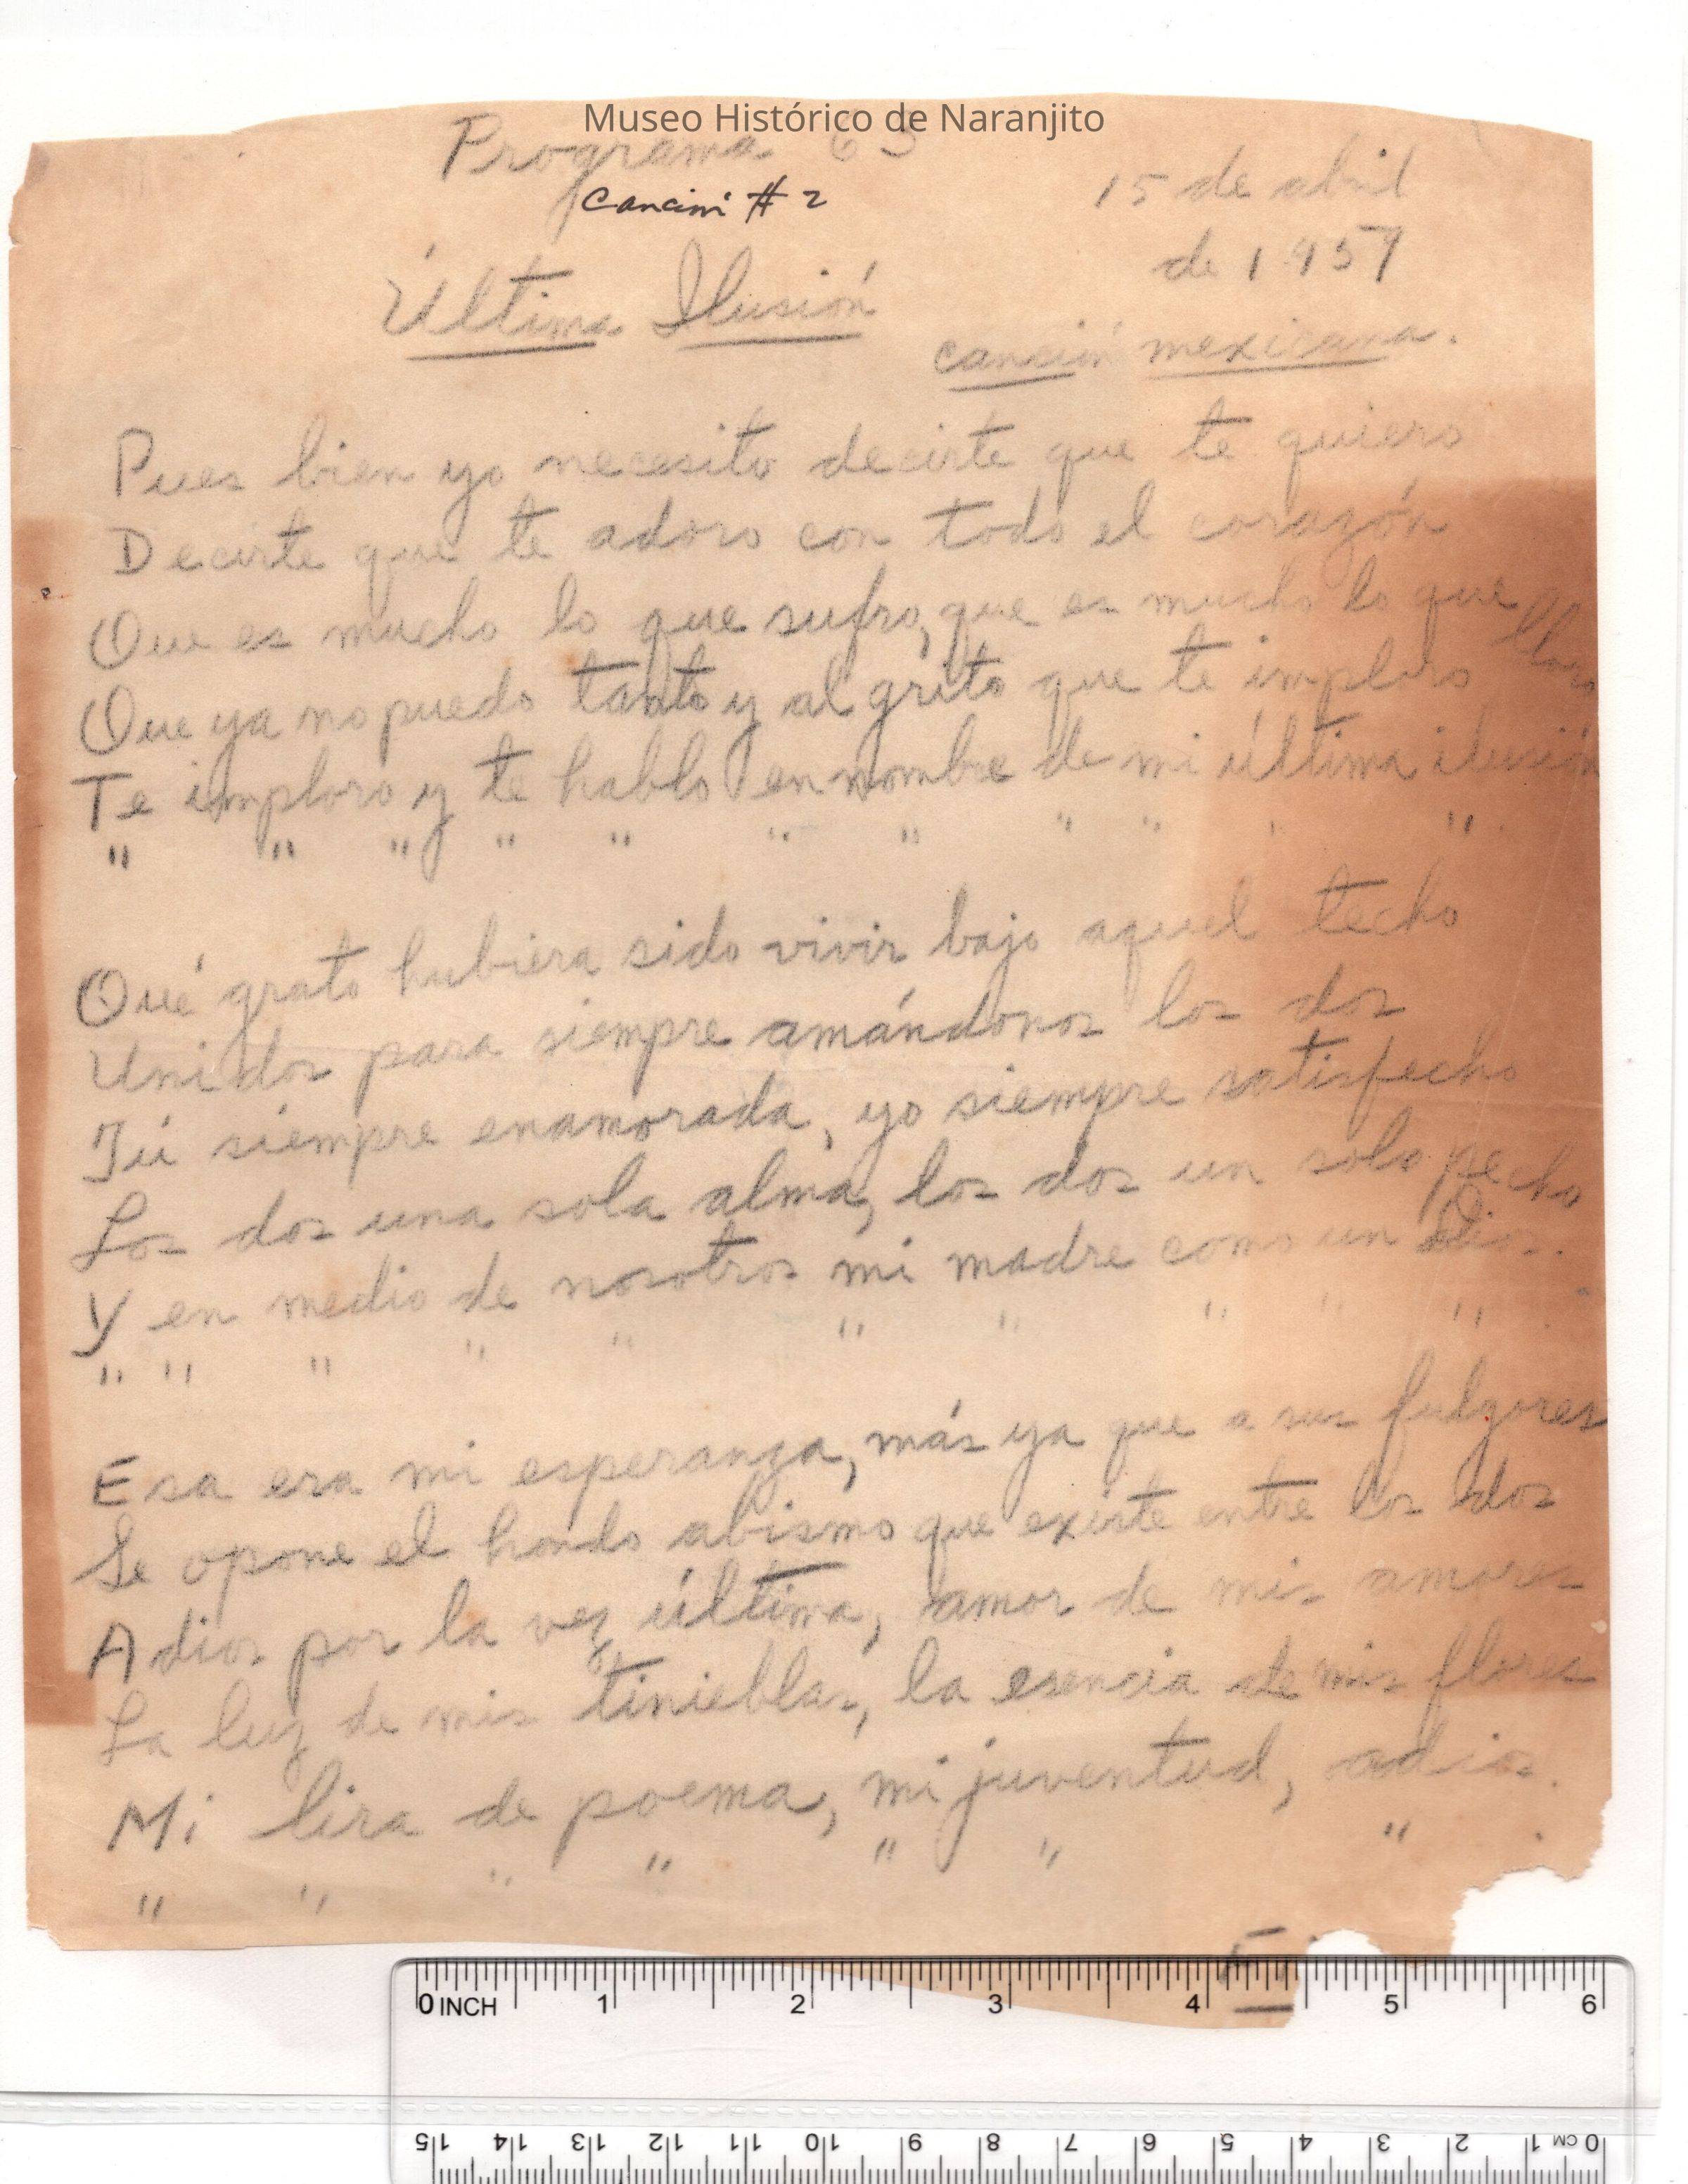 Museo Histórico de Naranjito
Programa 63
Canción # 2
15 de abril
de 1957
Última Ilusión
canción mexicana.
Pues bien yo necesito decirte que te quiero
Decirte que te adoro con todo el corazón
Que es mucho lo que sufro, que es mucho lo que lloro
Que ya no puedo tanto y al grito que te imploro
Te imploro y te hablo en nombre de mi última ilusión
" " " " " " " " " " "
Qué grato hubiera sido vivir bajo aquel techo
Unidos para siempre amándonos los dos
Tú siempre enamorada, yo siempre satisfecho
Los dos una sola alma, los dos un solo pecho
Y en medio de nosotros mi madre como un Dios.
" " " " " " " " " "
Esa era mi esperanza, más ya que a sus fulgores
Se opone el hondo abismo que existe entre los dos
Adios por la vez última, amor de mis amores
La luz de mis tinieblas, la esencia de mis flores
Mi lira de poema, mi juventud, adios.
" " " " " " "
0 INCH 1 2 3 4 5 6
15 14 13 12 11 10 9 8 7 6 5 4 3 2 1 CM 0